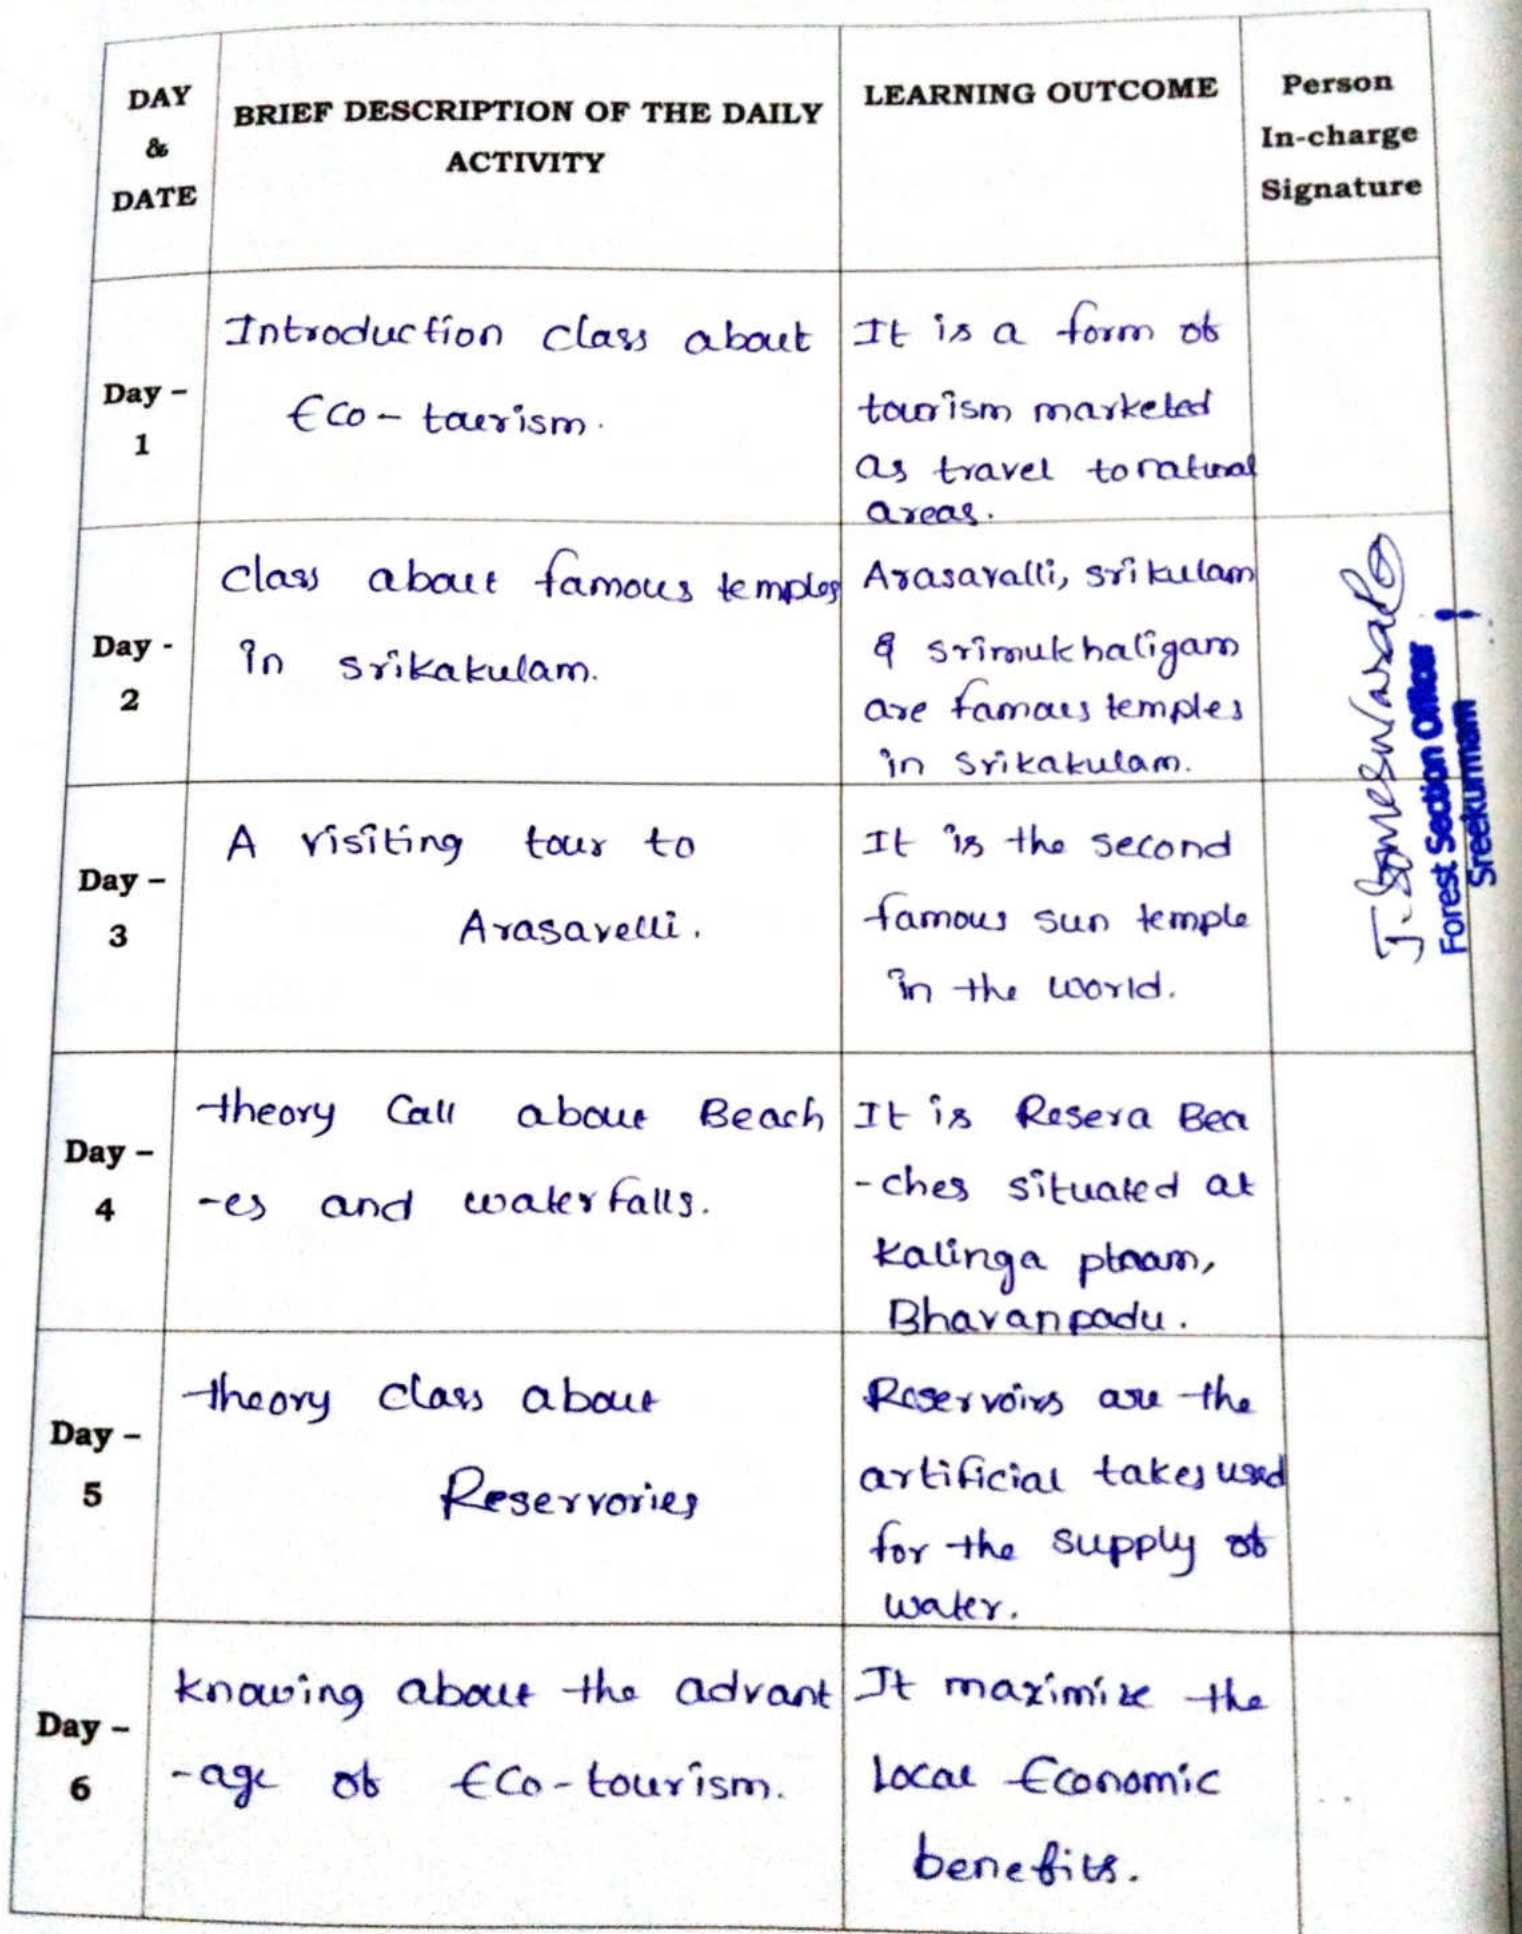 DAY
&
DATE
BRIEF DESCRIPTION OF THE DAILY
ACTIVITY
LEARNING OUTCOME
Person
In-charge
Signature
Day -
1
Introduction class about
Eco - tourism.
It is a form of
tourism marketed
as travel to natural
areas.
Day -
2
class about famous temples
in srikakulam.
Arasavalli, srikulam
& srimukhaligam
are famous temples
in srikakulam.
Day -
3
A visiting tour to
Arasavelli.
It is the second
famous sun temple
in the world.
J. Someswararao
Forest Section Officer
Sreekurmam
Day -
4
theory Call about Beach
-es and waterfalls.
It is Resera Bea
-ches situated at
Kalinga ptnam,
Bhavanpadu.
Day -
5
theory class about
Reservories
Reservoirs are the
artificial takes used
for the supply of
water.
Day -
6
knowing about the advant
-age of Eco-tourism.
It maximize the
Local Economic
benefits.